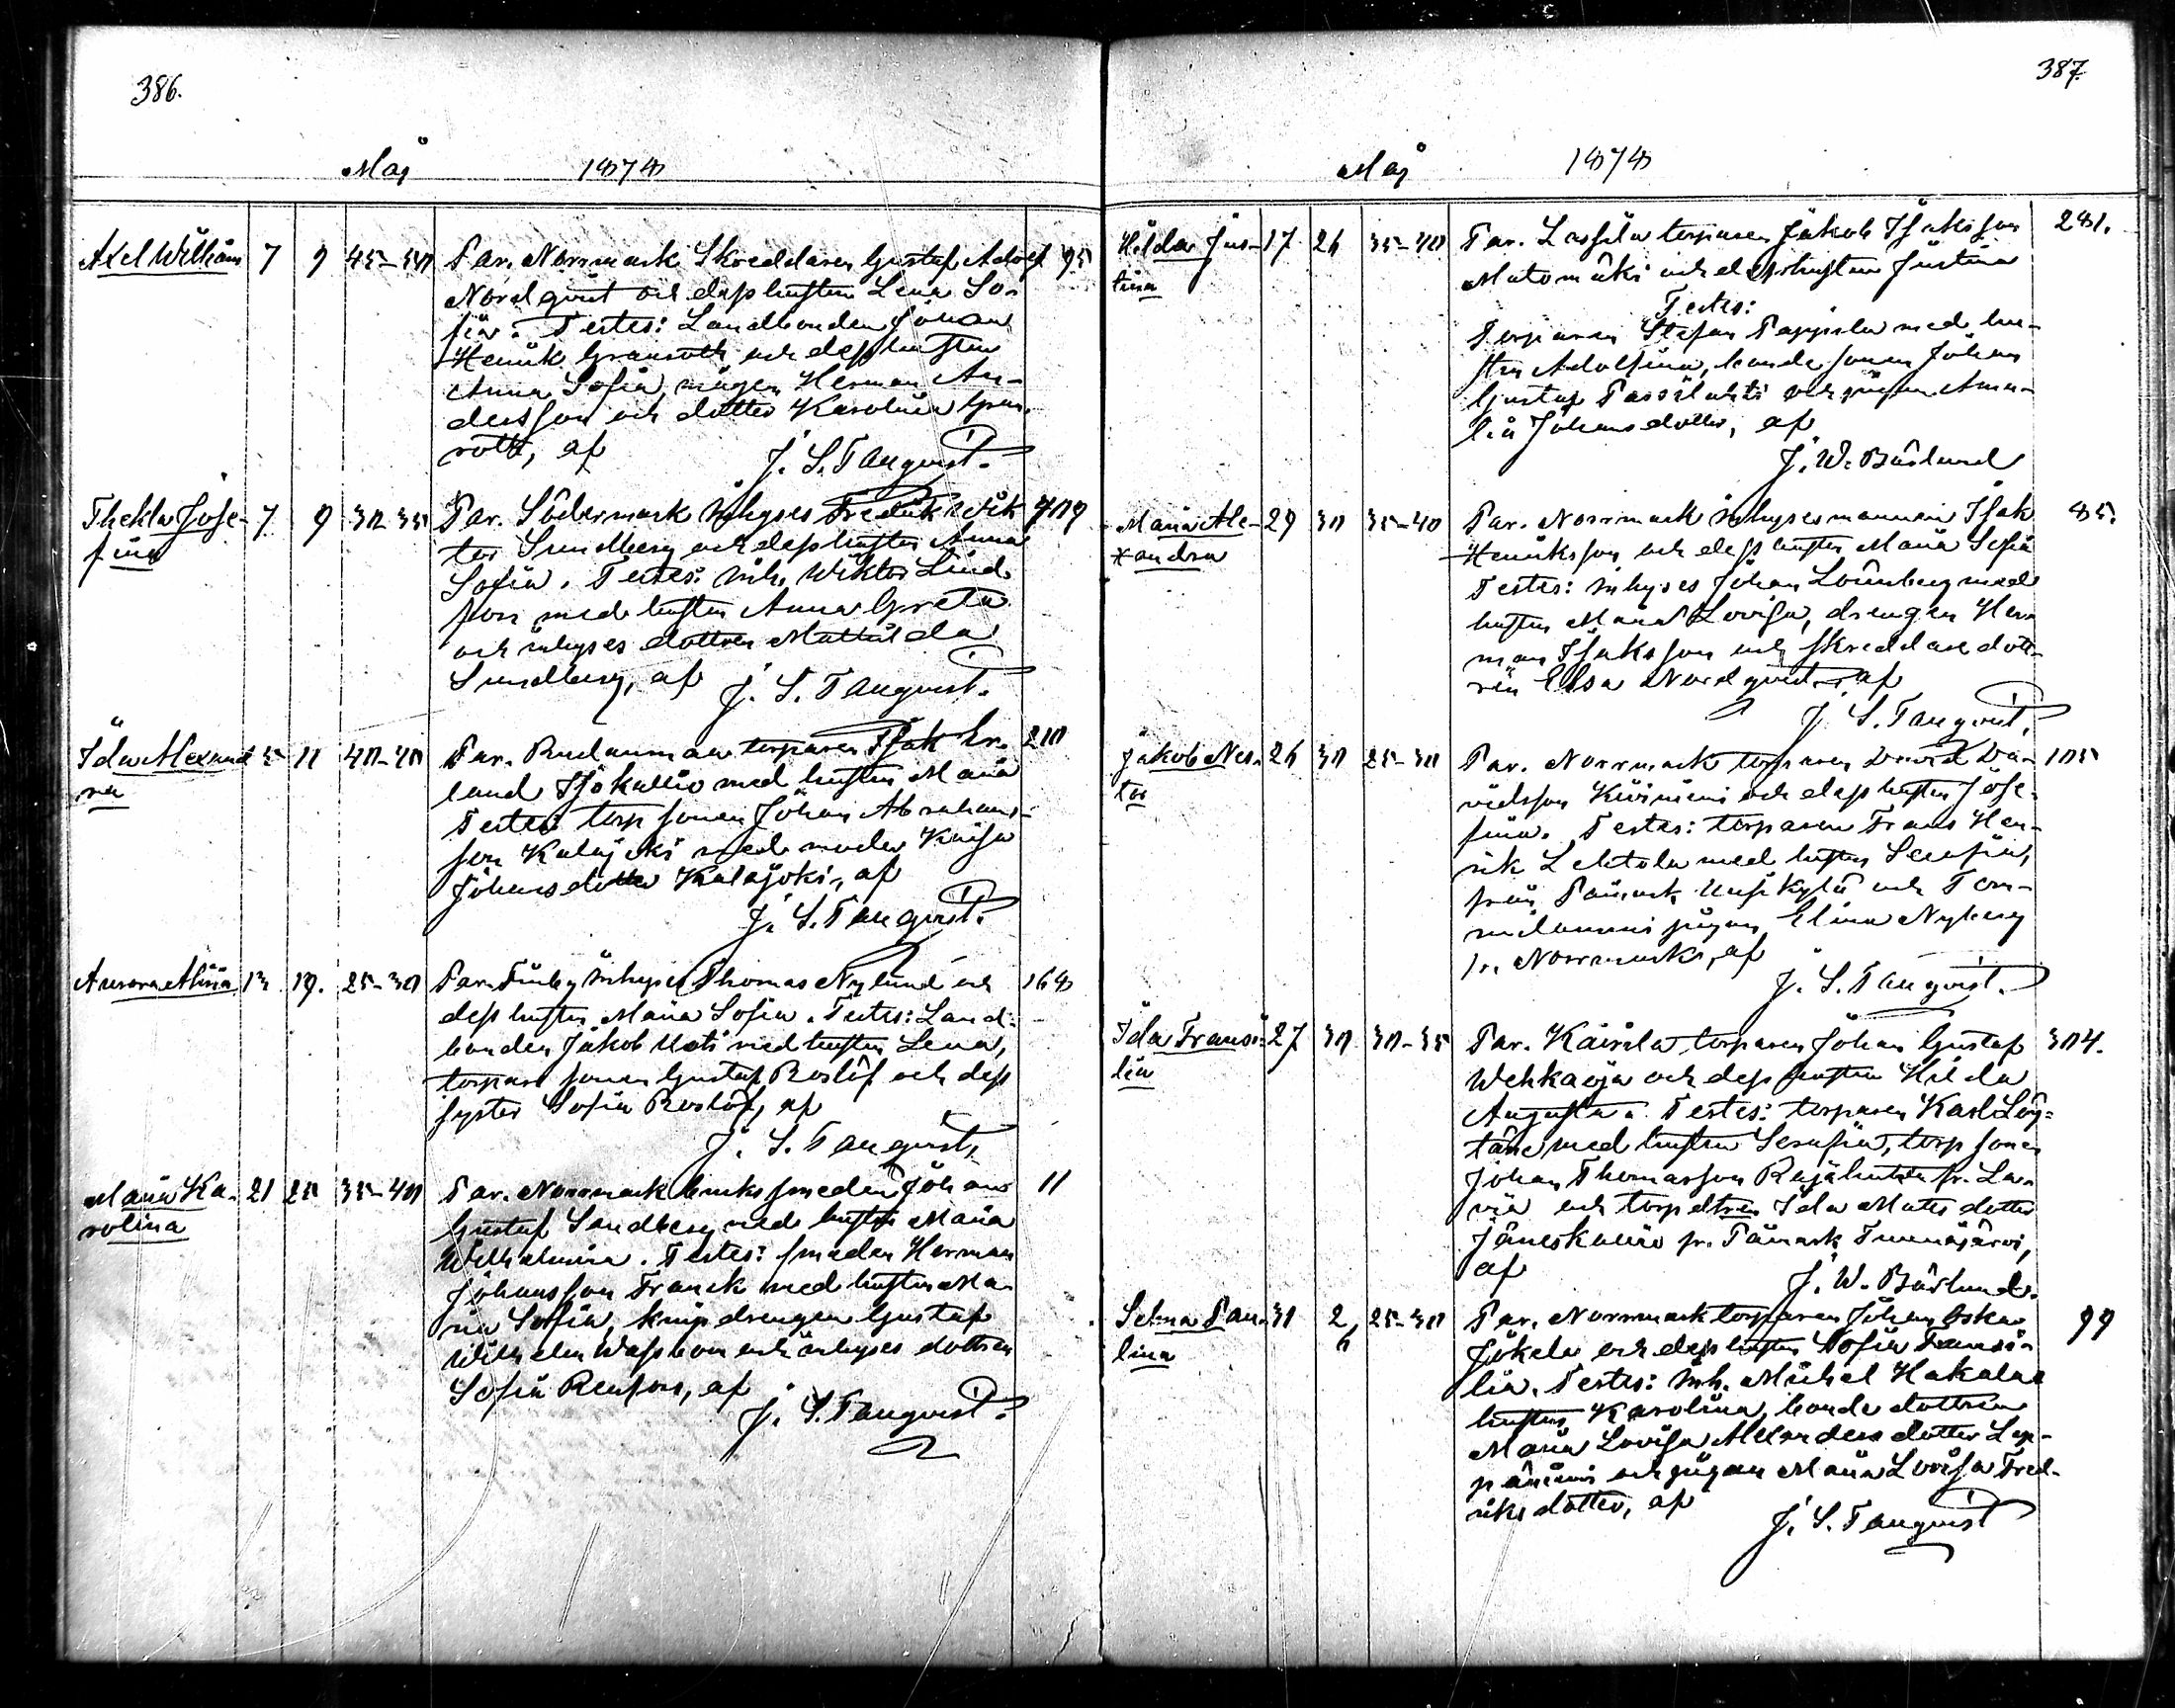 386.
Maj 1878
Axel Wilhelm 7 9 45-50 Par. Norrmark Skreddaren Gustaf Adolf 95
Nordqvist och dess hustru Lena So-
fia. Testes: Landbonden Johan
Henrik Granroth och dess hustru
Anna Sofia, mågen Herman An-
dersson och dotter Karolina Gran-
roth, af
J. S. Tanqvist.
Thekla Jose- 7 9 30-35 Par. Södermark inhyses Fredrik Wik
fina
tor Sundberg och dess hustru Anna
Sofia. Testes: inh. Wiktor Lind-
fors med hustru Anna Greta
och inhyses dottren Mathilda
Sundberg, af
J. S. Tanqvist.
Ida Alexand 5 11 40-40 Par. Rudanmaa torparen Isak Er- 210
ra
land Isokallio med hustru Maria
Testes torp sonen Johan Abrahams-
son Kalajoki med moder Kaisa
Johansdotter Kalajoki, af
J. S. Tanqvist.
Aurora Alina 13 19. 25-30 Par. Finby inhyses Thomas Nylund och 168
dess hustru Maria Sofia. Testes: Land-
bonden Jakob Uoti med hustru Lena,
torpare sonen Gustaf Roslöf och dess
syster Sofia Roslöf, af
J. S. Tanqvist.
Maria Ka- 21 25 35-40 Par. Norrmark bruks smeden Johan 11
rolina
Gustaf Sandberg med hustru Maria
Wilhelmina. Testes: smeden Herman
Johansson Franck med hustru Ma-
ria Sofia, drengen Gustaf
Wilhelm och inhyses dottren
Sofia Renfors, af
J. S. Tanqvist.
387.
Maj 1878
Hilda Jus- 17 26 35-40 Par. Lassila torparen Jakob Isaksson 281.
tina
Matomäki och dess hustru Justina
Testes:
Torparen Stefan Pappila med hu-
stru Adolfina, bonde sonen Johan
Gustaf Passilahti och pigan Ama-
lia Johansdotter, af
J. W. Bärlund
Maria Ale- 29 30 35-40 Par. Norrmark inhysesmannen Isak 85.
xandra
Henriksson och dess hustru Maria Sofia
Testes: inhyses Johan Lönnberg med
hustru Maria Lovisa, drengen Her-
man Isaksson och skreddare dott-
ren Elsa Nordqvist, af
J. S. Tanqvist.
Jakob Nes- 26 30 25-30 Par. Norrmark torparen David Da- 105
tor
vidsson Kiviniemi och dess hustru Jose-
fina. Testes: torparen Frans Hen-
rik Lehtola med hustru Serafia,
från Påmark Uusikylä och Tom-
pigan Elina Nyberg
fr. Norrmark, af
J. S. Tanqvist.
Ida Fransi- 27 30 30-35 Par. Kairila torparen Johan Gustaf 304.
lia
Wehkaoja och dess hustru Hilda
Augusta. Testes: torparen Karl Löy-
täne med hustru Serafia, torp sonen
Johan Thomasson Rajalahti fr. La-
via och torp dtren Ida Mats dotter
Jäneskallio fr. Påmark,
af
J. W. Bärlund.
Selma Pau- 31 2/6 25-30 Par. Norrmark torparen Johan Oskar 99
lina
Jokela och dess hustru Sofia Fransi-
lia. Testes: inh. Mickel Hakala
hustru Karolina, bonde dottren
Maria Lovisa Alexanders dotter Lep-
päniemi och pigan Maria Lovisa Fred-
riks dotter, af
J. S. Tanqvist